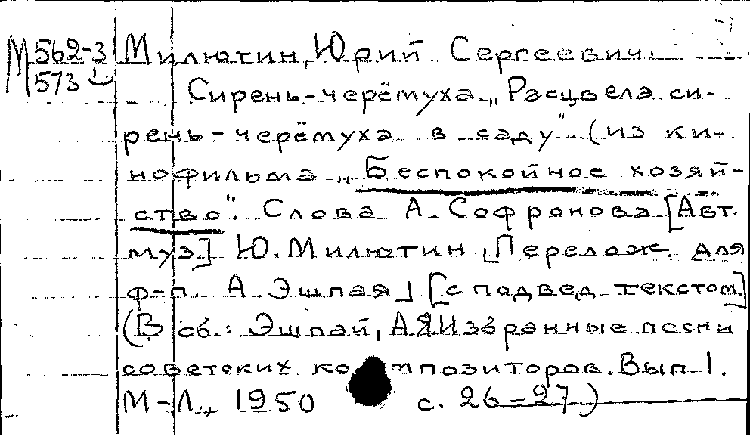 М 562-3 Милютин, Юрий Сергеевич.
573 Сирень-черёмуха. „Расцвела си-
рень-черёмуха в саду" (из ки-
нофильма „Беспокойное хозяй-
ство". Слова А. Софронова [Авт.
муз.] Ю. Милютин [Перелож. для
ф-п. А. Эшпая] [с подвед. текстом]
(В сб.: Эшпай, А.Я. Избранные песни
советских композиторов. Вып. 1.
М-Л., 1950 с. 26-27)